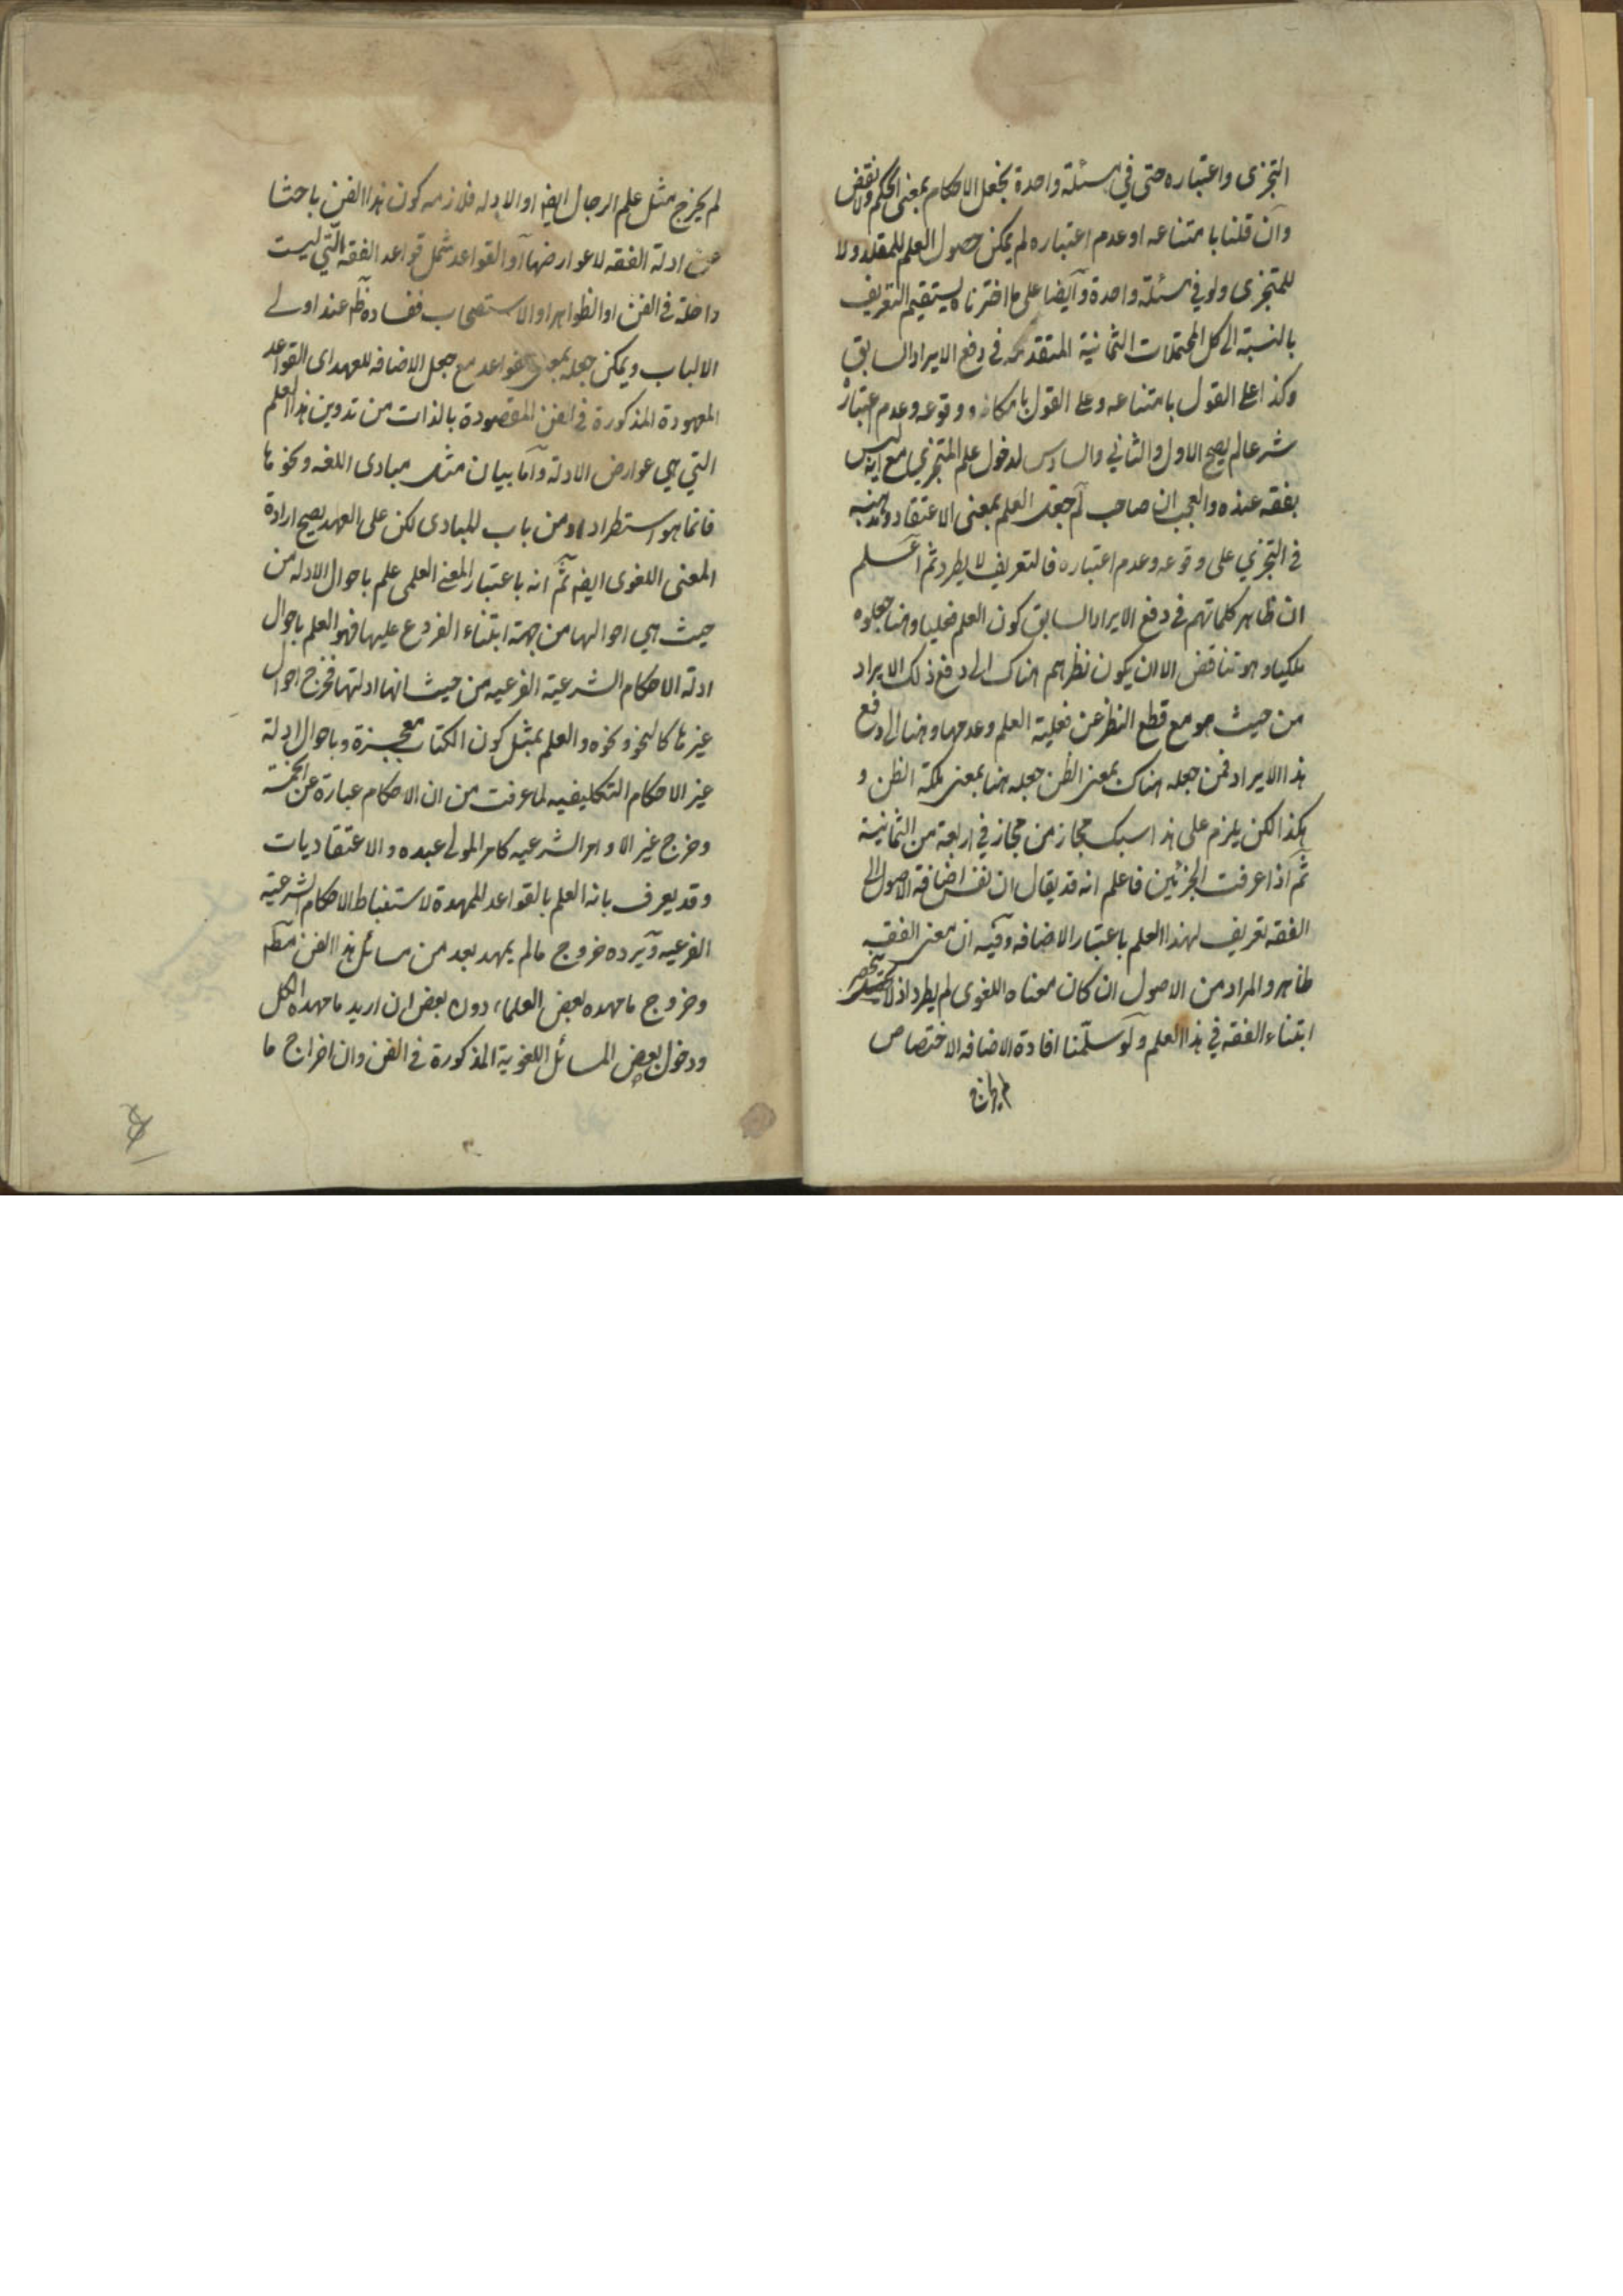 التجزی واعتباره حتی فی مسئلة واحدة بجعل الاحکام بمعنی الحکم ولا نقض
وان قلنا بامتناعه او عدم اعتباره لم یمکن حصول العلم للمقلد ولا
للمتجزی ولو فی مسئلة واحدة وایضا علی ما اخترناه یستقیم التعریف
بالنسبة الی کل المحتملات الثمانیة المتقدمة فی دفع الایراد السابق
وکذا علی القول بامتناعه وعلی القول بامکانه ووقوعه وعدم اعتباره
شرعا لم یصح الاول والثانی والسادس لدخول علم المتجزی مع انه لیس
بفقه عنده والعجب ان صاحب لم جعل العلم بمعنی الاعتقاد ومذهبه
فی التجزی علی وقوعه وعدم اعتباره فالتعریف لا یطرد ثم اعلم
ان ظاهر کلماتهم فی دفع الایراد السابق کون العلم فعلیا وهنا جعلوه
ملکیا وهو تناقض الا ان یکون نظرهم هناک الی دفع ذلک الایراد
من حیث هو مع قطع النظر عن فعلیة العلم وعدمها وهنا الی دفع
هذا الایراد فمن جعله هناک بمعنی الظن جعله هنا بمعنی ملکة الظن و
هکذا لکن یلزم علی هذا سبک مجاز من مجاز فی اربعة من الثمانیة
ثم اذا عرفت الجزئین فاعلم انه قد یقال ان نفس اضافة الاصول الی
الفقه تعریف لهذا العلم باعتبار الاضافه وفیه ان معنی الفقه
ظاهر والمراد من الاصول ان کان معناه اللغوی لم یطرد اذ لا ینحصر
ابتناء الفقه فی هذا العلم ولو سلمنا افادة الاضافه الاختصاص
لم یخرج
لم یخرج مثل علم الرجال ایضا او الادله فلازمه کون هذا الفن باحثا
عن ادلة الفقه لا عوارضها او القواعد شمل قواعد الفقه التی لیست
داخلة فی الفن او الظواهر او الاستصحاب ففساده ظ عند اولی
الالباب ویمکن جعله بمعنی القواعد مع جعل الاضافه للعهد ای القواعد
المعهودة المذکورة فی الفن المقصودة بالذات من تدوین هذا العلم
التی هی عوارض الادلة واما بیان مثل مبادی اللغه ونحوها
فانما هو استطراد او من باب المبادی لکن علی العهد یصح ارادة
المعنی اللغوی ایضا ثم انه باعتبار المعنی العلمی علم باحوال الادله من
حیث هی احوالها من جهة ابتناء الفروع علیها فهو العلم باحوال
ادلة الاحکام الشرعیة الفرعیه من حیث انها ادلتها فخرج احوال
غیرها کالنحو ونحوه والعلم بمثل کون الکتاب معجزة وباحوال ادلة
غیر الاحکام التکلیفیه لما عرفت من ان الاحکام عبارة عن الخمسة
وخرج غیر الاوامر الشرعیه کامر المولی عبده والاعتقادیات
وقد یعرف بانه العلم بالقواعد الممهدة لاستنباط الاحکام الشرعیة
الفرعیه ویرده خروج مالم یمهد بعد من مسائل هذا الفن مط
وخروج ما مهده بعض العلماء دون بعض ان ارید ما مهده الکل
ودخول بعض المسائل اللغویة المذکورة فی الفن وان اخراج ما